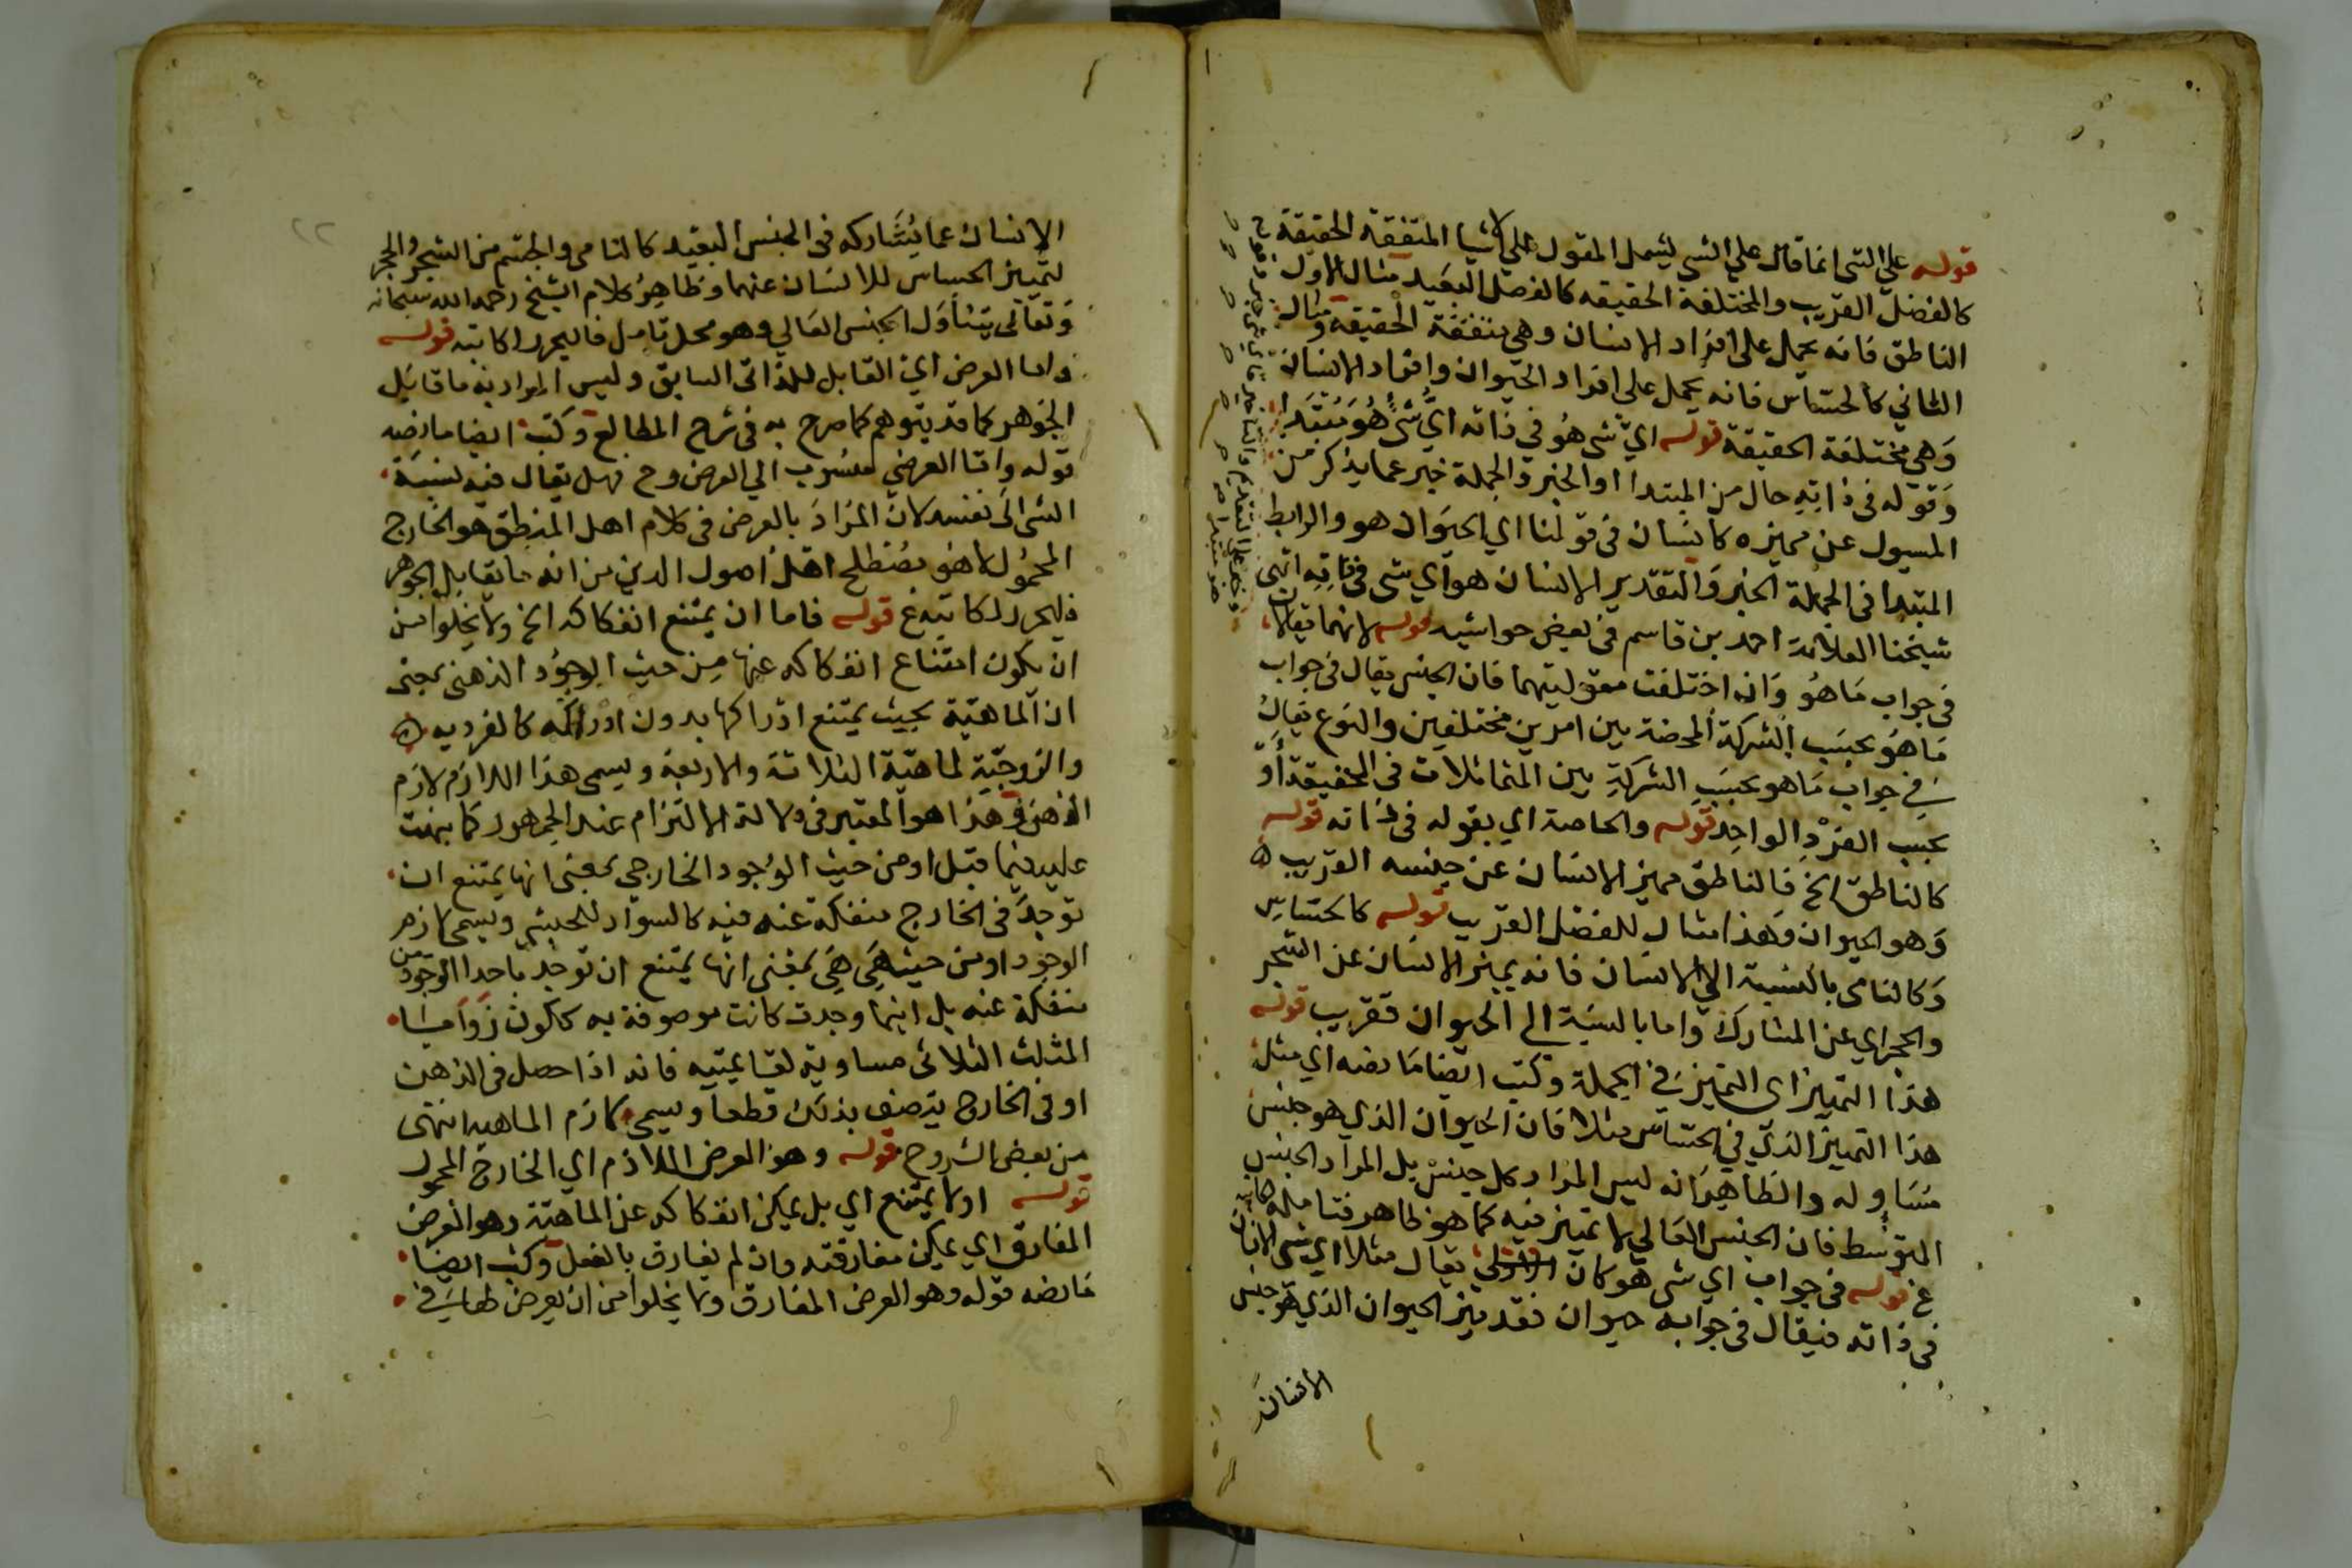 قوله على الشي انما قال على الشي ليشمل المقول على الاشيا المتفقة الحقيقة
كالفصل القريب والمختلفة الحقيقه كالفصل البعيد مثال الاول
الناطق فانه يحمل على افراد الانسان وهي متفقة الحقيقه ومثال
الثاني كالحساس فانه يحمل على افراد الحيوان وافراد الانسان
وهي مختلفة الحقيقة قوله اي شي هو في ذاته اي شي هو مبتدا
وقوله في ذاته حال من المبتدا او الخبر والجملة خبر عما يذكر من
المسيول عن مميزه كانسان في قولنا اي الحيوان هو والرابط
المبتدا في الجملة الخبر والتقدير الانسان هو اي شي في ذاته انتهى
شيخنا العلامة احمد بن قاسم في بعض حواشيه قوله لانهما يقالان
في جواب ما هو وان اختلفت مقوليتهما فان الجنس يقال في جواب
ما هو بحسب الشركة المحضة بين امرين مختلفين والنوع يقال
في جواب ما هو بحسب الشركة بين المتماثلات في الحقيقة او
بحسب الفرد الواحد قوله والخاصة اي بقوله في ذاته قوله
كالناطق الخ فالناطق مميز الانسان عن جنسه القريب ه
وهو الحيوان وهذا مثال للفصل القريب قوله كالحساس
وكالنامي بالنسبة الى الانسان فانه يميز الانسان عن الشجر
والحجر اي عن المشارك واما بالنسبة الى الحيوان فقريب قوله
هذا التمييز اي التميز في الجملة وكتب ايضا ما نصه اي مثل
هذا التمييز الذي في الحساس مثلا فان الحيوان الذي هو جنس
مساو له والظاهر انه ليس المراد كل جنس بل المراد الجنس
المتوسط فان الجنس العالي لا تميز فيه كما هو ظاهر فتامله كاتبه
غ قوله في جواب اي شي هو كان يقال مثلا اي شي الانسان
في ذاته فيقال في جوابه حيوان فقد ميز الحيوان الذي هو جنس
الانسان
٢٢
الانسان عما يشاركه في الجنس البعيد كالنامي والجسم من الشجر والحجر
لتمييز الحساس للانسان عنهما وظاهر كلام الشيخ رحمه الله سبحانه
وتعالى يتناول الجنس العالي وهو محل تامل فاليحرر اكاتبه قوله
واما العرض اي القابل للذاتي السابق وليس المراد به ما قابل
الجوهر كما قد يتوهم كما صرح به في شرح المطالع وكتب ايضا ما نصه
قوله واما العرضي منسوب الي العرض وح فهل يقال فيه نسبة
الشي الى نفسه لان المراد بالعرض في كلام اهل المنطق هو الخارج
المحمول لا هو بمصطلح اهل اصول الدين من انه ما يقابل الجوهر
فليحرر لكاتبه غ قوله فاما ان يمتنع انفكاكه الخ ولا يخلوا من
ان يكون امتناع انفكاكه عنها من حيث الوجود الذهني بمعنى
ان الماهية بحيث يمتنع ادراكها بدون ادراكه كالفرديه ه
والزوجية لماهية الثلاثة والاربعة ويسمى هذا اللازم لازم
الذهن وهذا هو المعتبر في دلالة الالتزام عند الجمهور كما بهنت
عليه فيما قبل او من حيث الوجود الخارجي بمعنى انها يمتنع ان
توجد في الخارج منفكة عنه فيه كالسواد للحبشي ويسمى لازم
الوجود او من حيث هي هي بمعنى انها يمتنع ان توجد باحدا الوجودين
منفكة عنه بل اينما وجدت كانت موصوفة به ككون زوايا
المثلث الثلاثي مساوية لقايمتيه فانه اذا حصل في الذهن
او في الخارج يتصف بذلك قطعا ويسمى لازم الماهيه انتهى
من بعض الشروح قوله وهو العرض اللازم اي الخارج المحمول
قوله اولا يمتنع اي بل يمكن انفكاكه عن الماهية وهو العرض
المفارق اي يمكن مفارقته وان لم يفارق بالفعل وكتب ايضا
ما نصه قوله وهو العرض المفارق ولا يخلوا من ان يعرض لها في